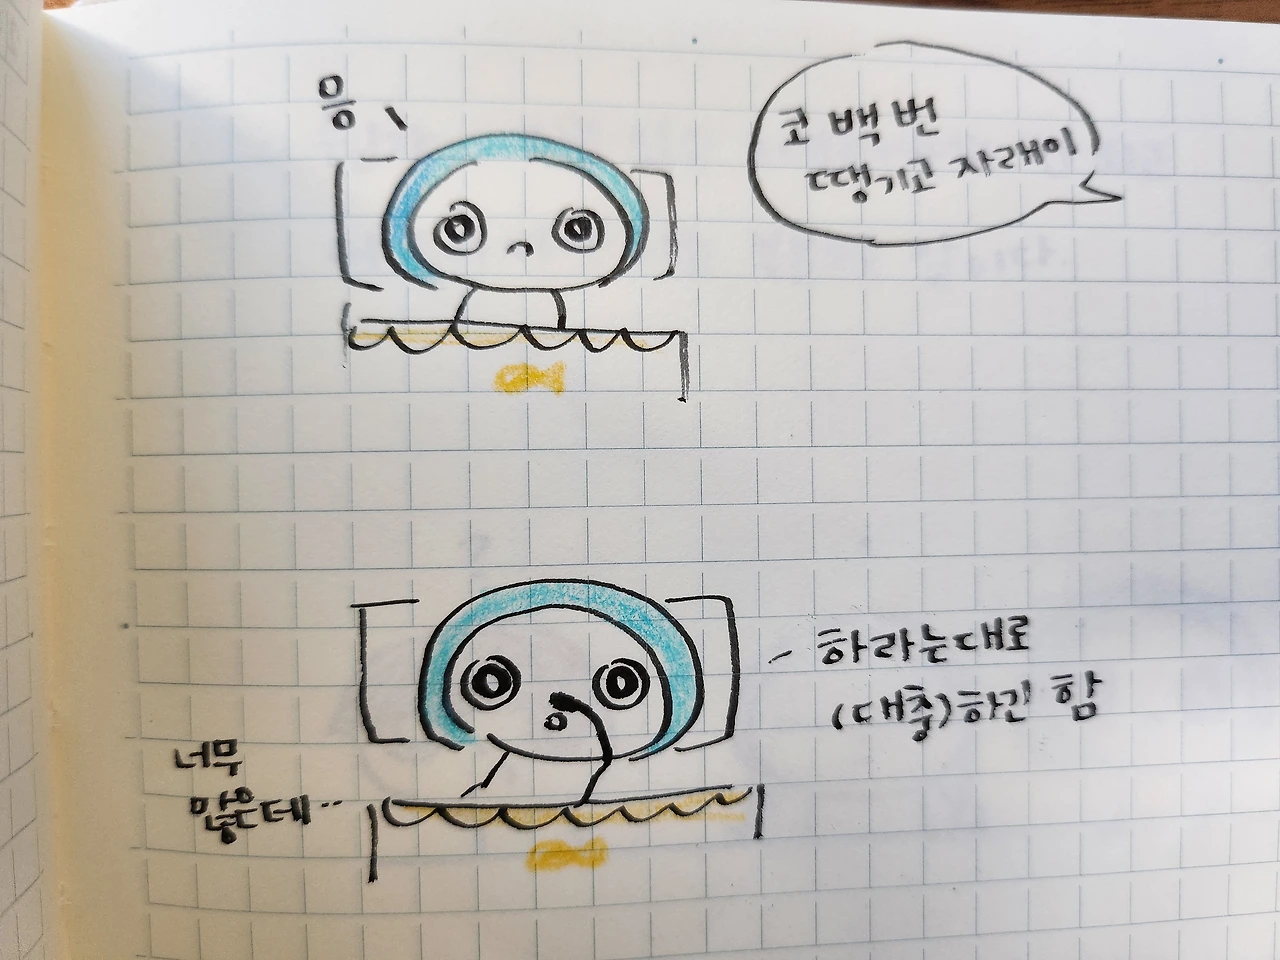 응
코 백 번
땡기고 자래이
하라는대로
(대충)하긴 함
너무
많은데..